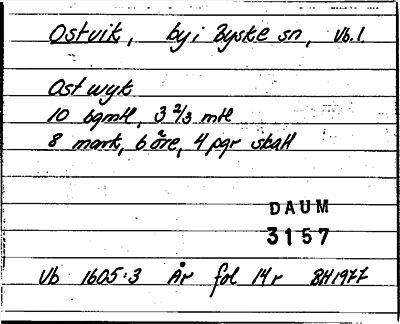 Ostvik, by i Byske sn, Vb.l.
Ostwyk
10 bgmtl, 3 2/3 mtl
8 mark, 6 öre, 4 pgr skatt
DAUM
3157
Vb 1605:3 År fol 14r BH1977